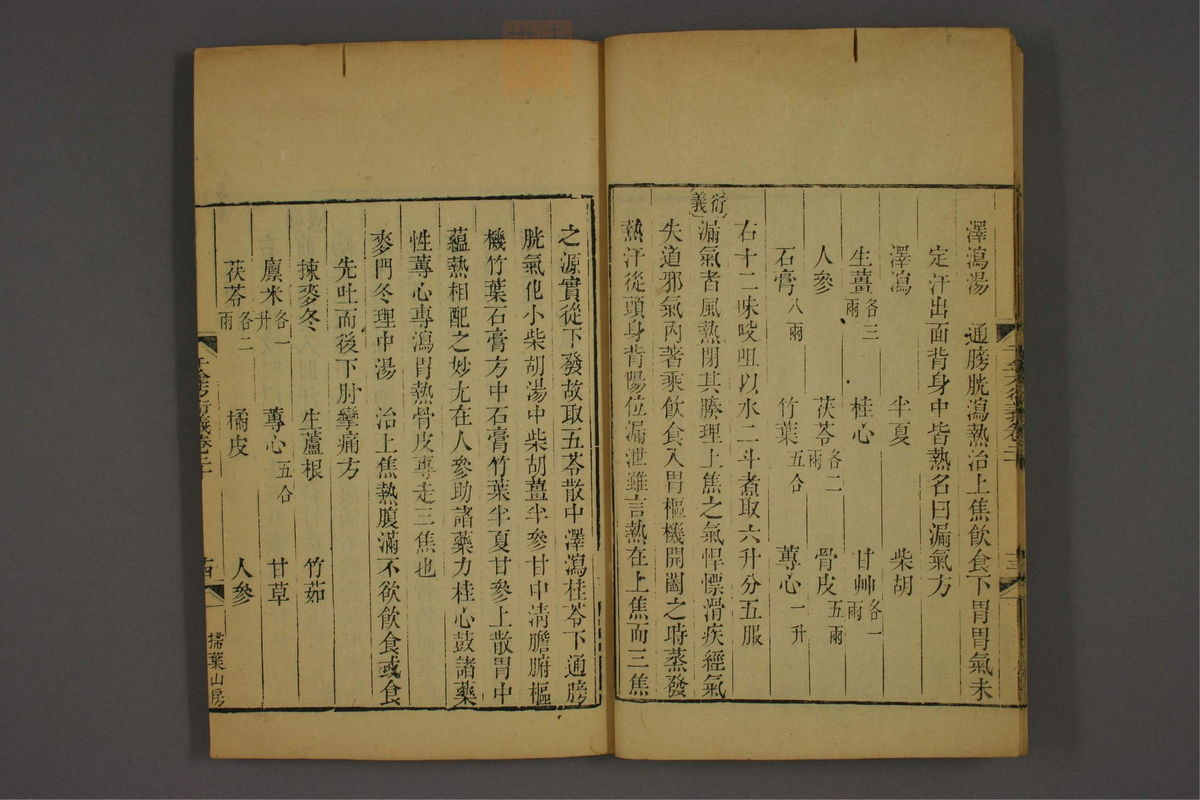 澤瀉湯　通膀胱瀉熱治上焦飲食下胃胃氣未
定汗出面背身中皆熱名曰漏氣方
澤瀉　半夏　柴胡
生薑各三兩　桂心　甘艸各一兩
人參　茯苓各二兩　骨皮五兩
石膏八兩　竹葉五合　蓴心一升
右十二味㕮咀以水二斗煮取六升分五服
衍義漏氣者風熱閉其腠理上焦之氣悍慓滑疾經氣
失道邪氣內著乘飲食入胃樞機開闔之時蒸發
熱汗從頭身背陽位漏泄雖言熱在上焦而三焦
之源實從下發故取五苓散中澤瀉桂苓下通膀
胱氣化小柴胡湯中柴胡薑半參甘中淸膽腑樞
機竹葉石膏方中石膏竹葉半夏甘參上散胃中
蘊熱相配之妙尤在人參助諸藥力桂心鼓諸藥
性蓴心專瀉胃熱骨皮專走三焦也
麥門冬理中湯　治上焦熱腹滿不欲飲食或食
先吐而後下肘攣痛方
揀麥冬　生蘆根　竹茹
廪米各一升　蓴心五合　甘草
茯苓各二兩　橘皮　人參
千金方衍義卷二十
掃葉山房